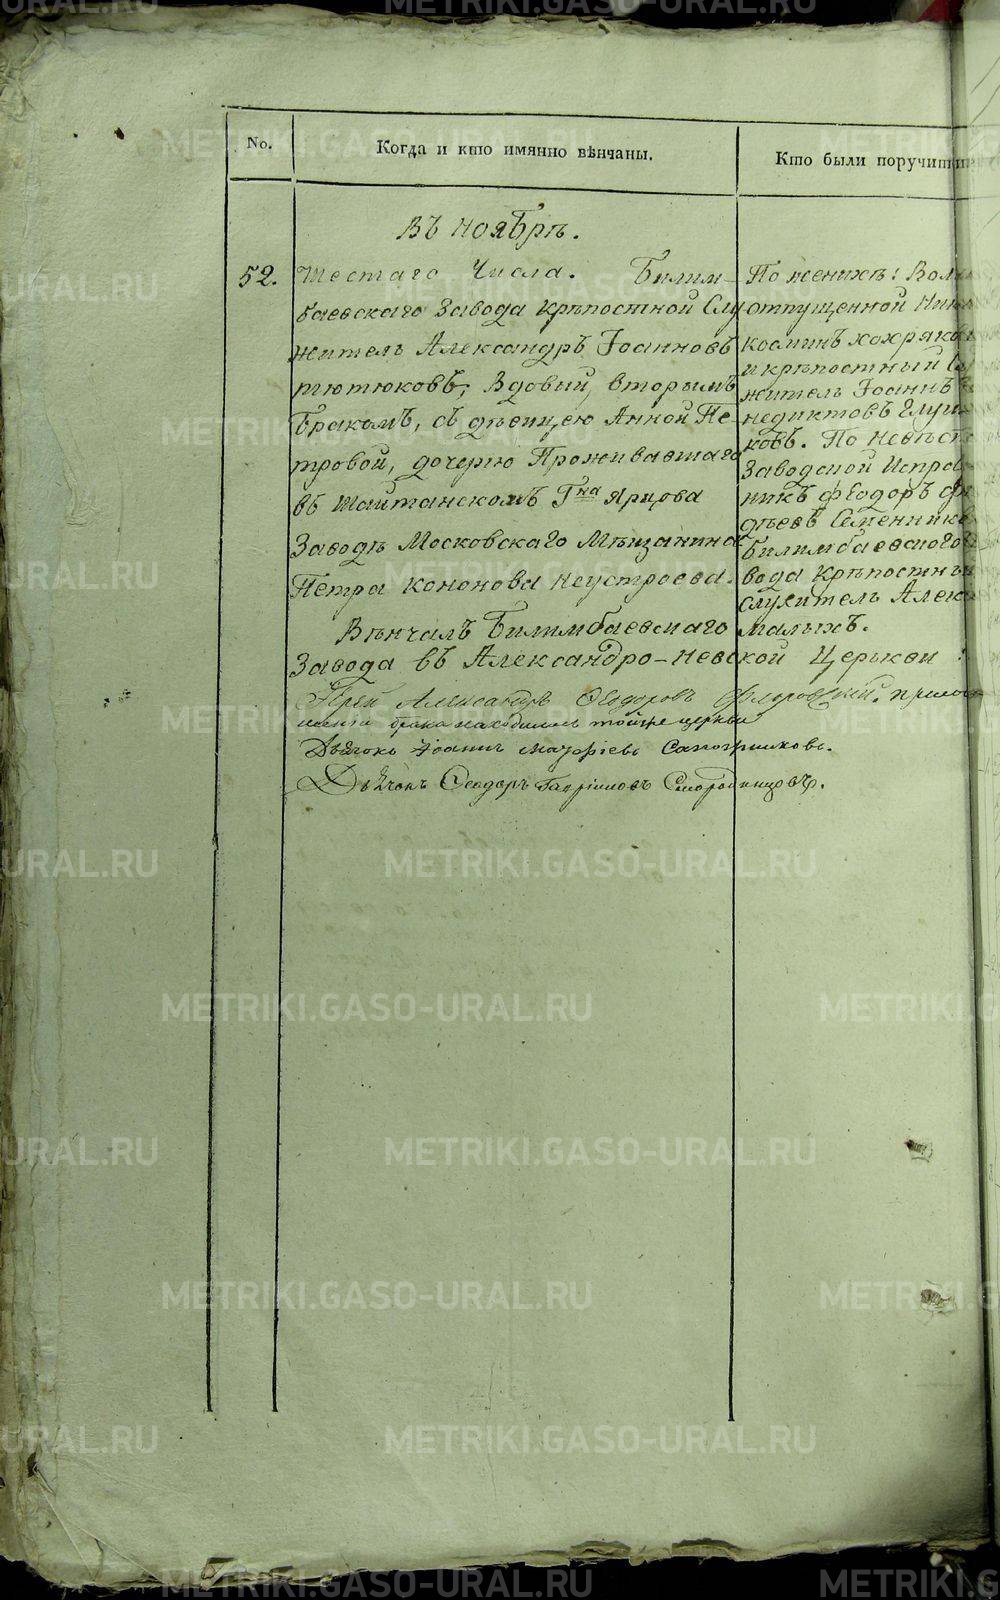 No.
Когда и кто имянно вѣнчаны.
Кто были поручит
Въ ноябрѣ.
52.
Шестаго Числа. Билим-
баевскаго Завода крѣпостной Слу
житель Александръ Іоанновъ
тютюковъ, Вдовый, вторымъ
бракомъ, съ дѣвицею Анной Пе-
тровой, дочерью Проживавшаго
въ Шайтанскомъ Гна Ярцова
Заводѣ Московскаго Мѣщанина
Петра кононова Неустроева.
Вѣнчалъ Билимбаевскаго
Завода въ Александро-невской Церькви
Іерей Александръ Ѳеодоровъ Флоровскій.
брака находились тойже церькви
Дьячокъ Іоаннъ Сапожниковъ.
Дьячокъ Ѳеодоръ Гавріиловъ Смородинцовъ.
По женихѣ: Воль
отпущенной Ник
косминъ хохряко
и крѣпостный Сл
житель Іоаннъ
недиктовъ Глуш
ковъ. По невѣстѣ
Заводской Исправ
никъ Ѳеодоръ
дѣевъ Семеннико
Билимбаевского
вода крѣпостны
служитель Алек
Малыхъ.